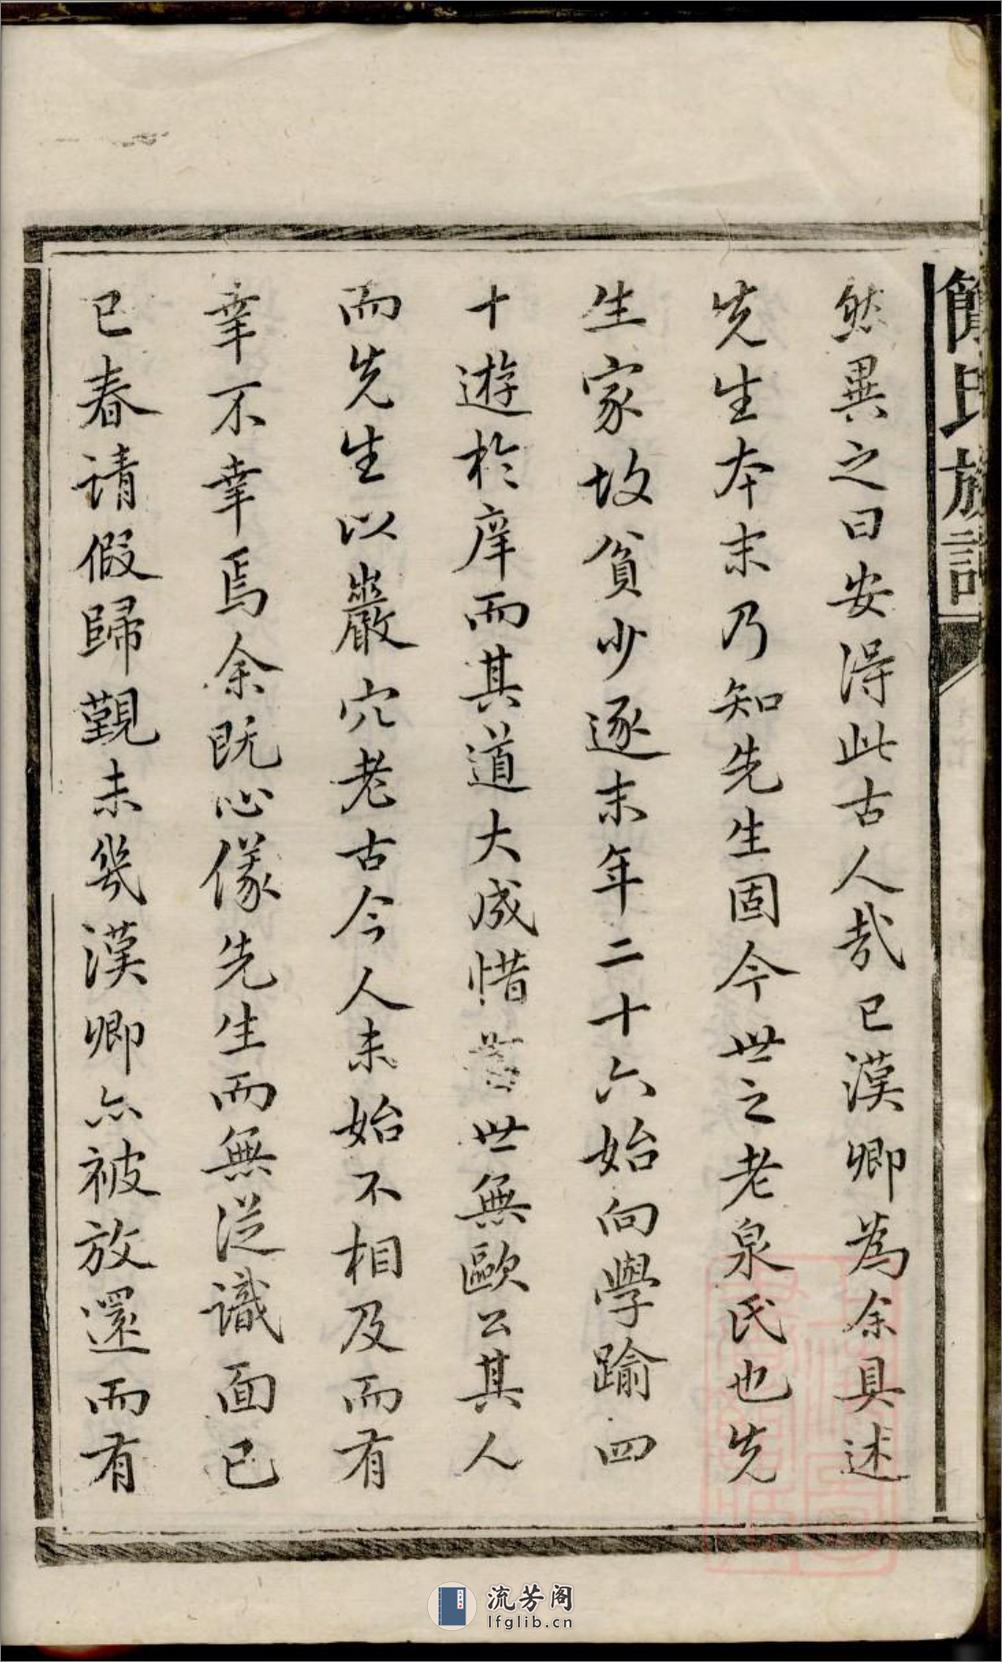 簡氏族譜
然異之曰安得此古人哉已漢卿為余具述
先生本末乃知先生固今世之老泉氏也先
生家故貧少逐末年二十六始向學踰四
十遊於庠而其道大成惜世無歐公其人
而先生以巖穴老古今人未始不相及而有
幸不幸焉余既心儀先生而無從識面已
巳春请假歸覲未幾漢卿亦被放還而有
流芳阁
lfglib.cn